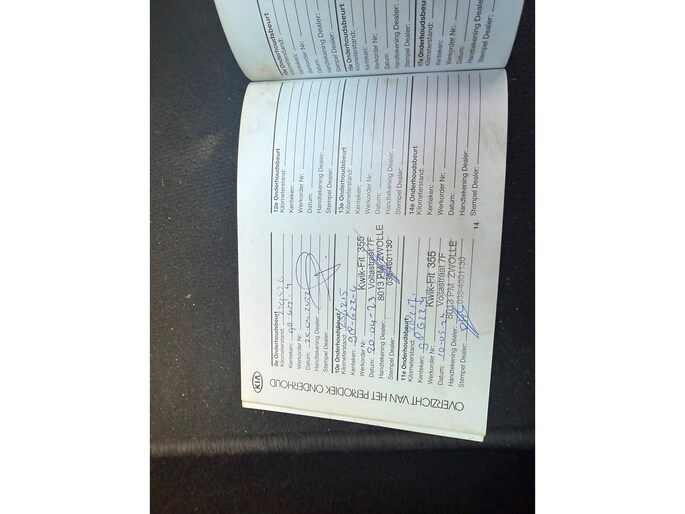 KIA
OVERZICHT VAN HET PERIODIEK ONDERHOUD
9e Onderhoudsbeurt
Kilometerstand:
Kenteken:
Werkorder Nr:
Datum:
Handtekening Dealer:
Stempel Dealer:
10e Onderhoudsbeurt
Kilometerstand:
Kenteken:
Werkorder Nr:
Datum: 20-04-23
Handtekening Dealer:
Stempel Dealer:
Kwik-Fit 355
Voltastraat 7F
8013 PM ZWOLLE
038-4601130
11e Onderhoudsbeurt
Kilometerstand:
Kenteken:
Werkorder Nr:
Datum:
Handtekening Dealer:
Stempel Dealer:
Kwik-Fit 355
Voltastraat 7F
8013 PM ZWOLLE
038-4601130
12e Onderhoudsbeurt
Kilometerstand:
Kenteken:
Werkorder Nr:
Datum:
Handtekening Dealer:
Stempel Dealer:
13e Onderhoudsbeurt
Kilometerstand:
Kenteken:
Werkorder Nr:
Datum:
Handtekening Dealer:
Stempel Dealer:
14e Onderhoudsbeurt
Kilometerstand:
Kenteken:
Werkorder Nr:
Datum:
Handtekening Dealer:
Stempel Dealer:
14
Onderhoudsbeurt
Kilometerstand:
Kenteken:
Werkorder Nr:
Datum:
Handtekening Dealer:
Stempel Dealer:
16e Onderhoudsbeurt
Kilometerstand:
Kenteken:
Werkorder Nr:
Datum:
Handtekening Dealer:
Stempel Dealer:
17e Onderhoudsbeurt
Kilometerstand:
Kenteken:
Werkorder Nr:
Datum:
Handtekening Dealer:
Stempel Dealer: